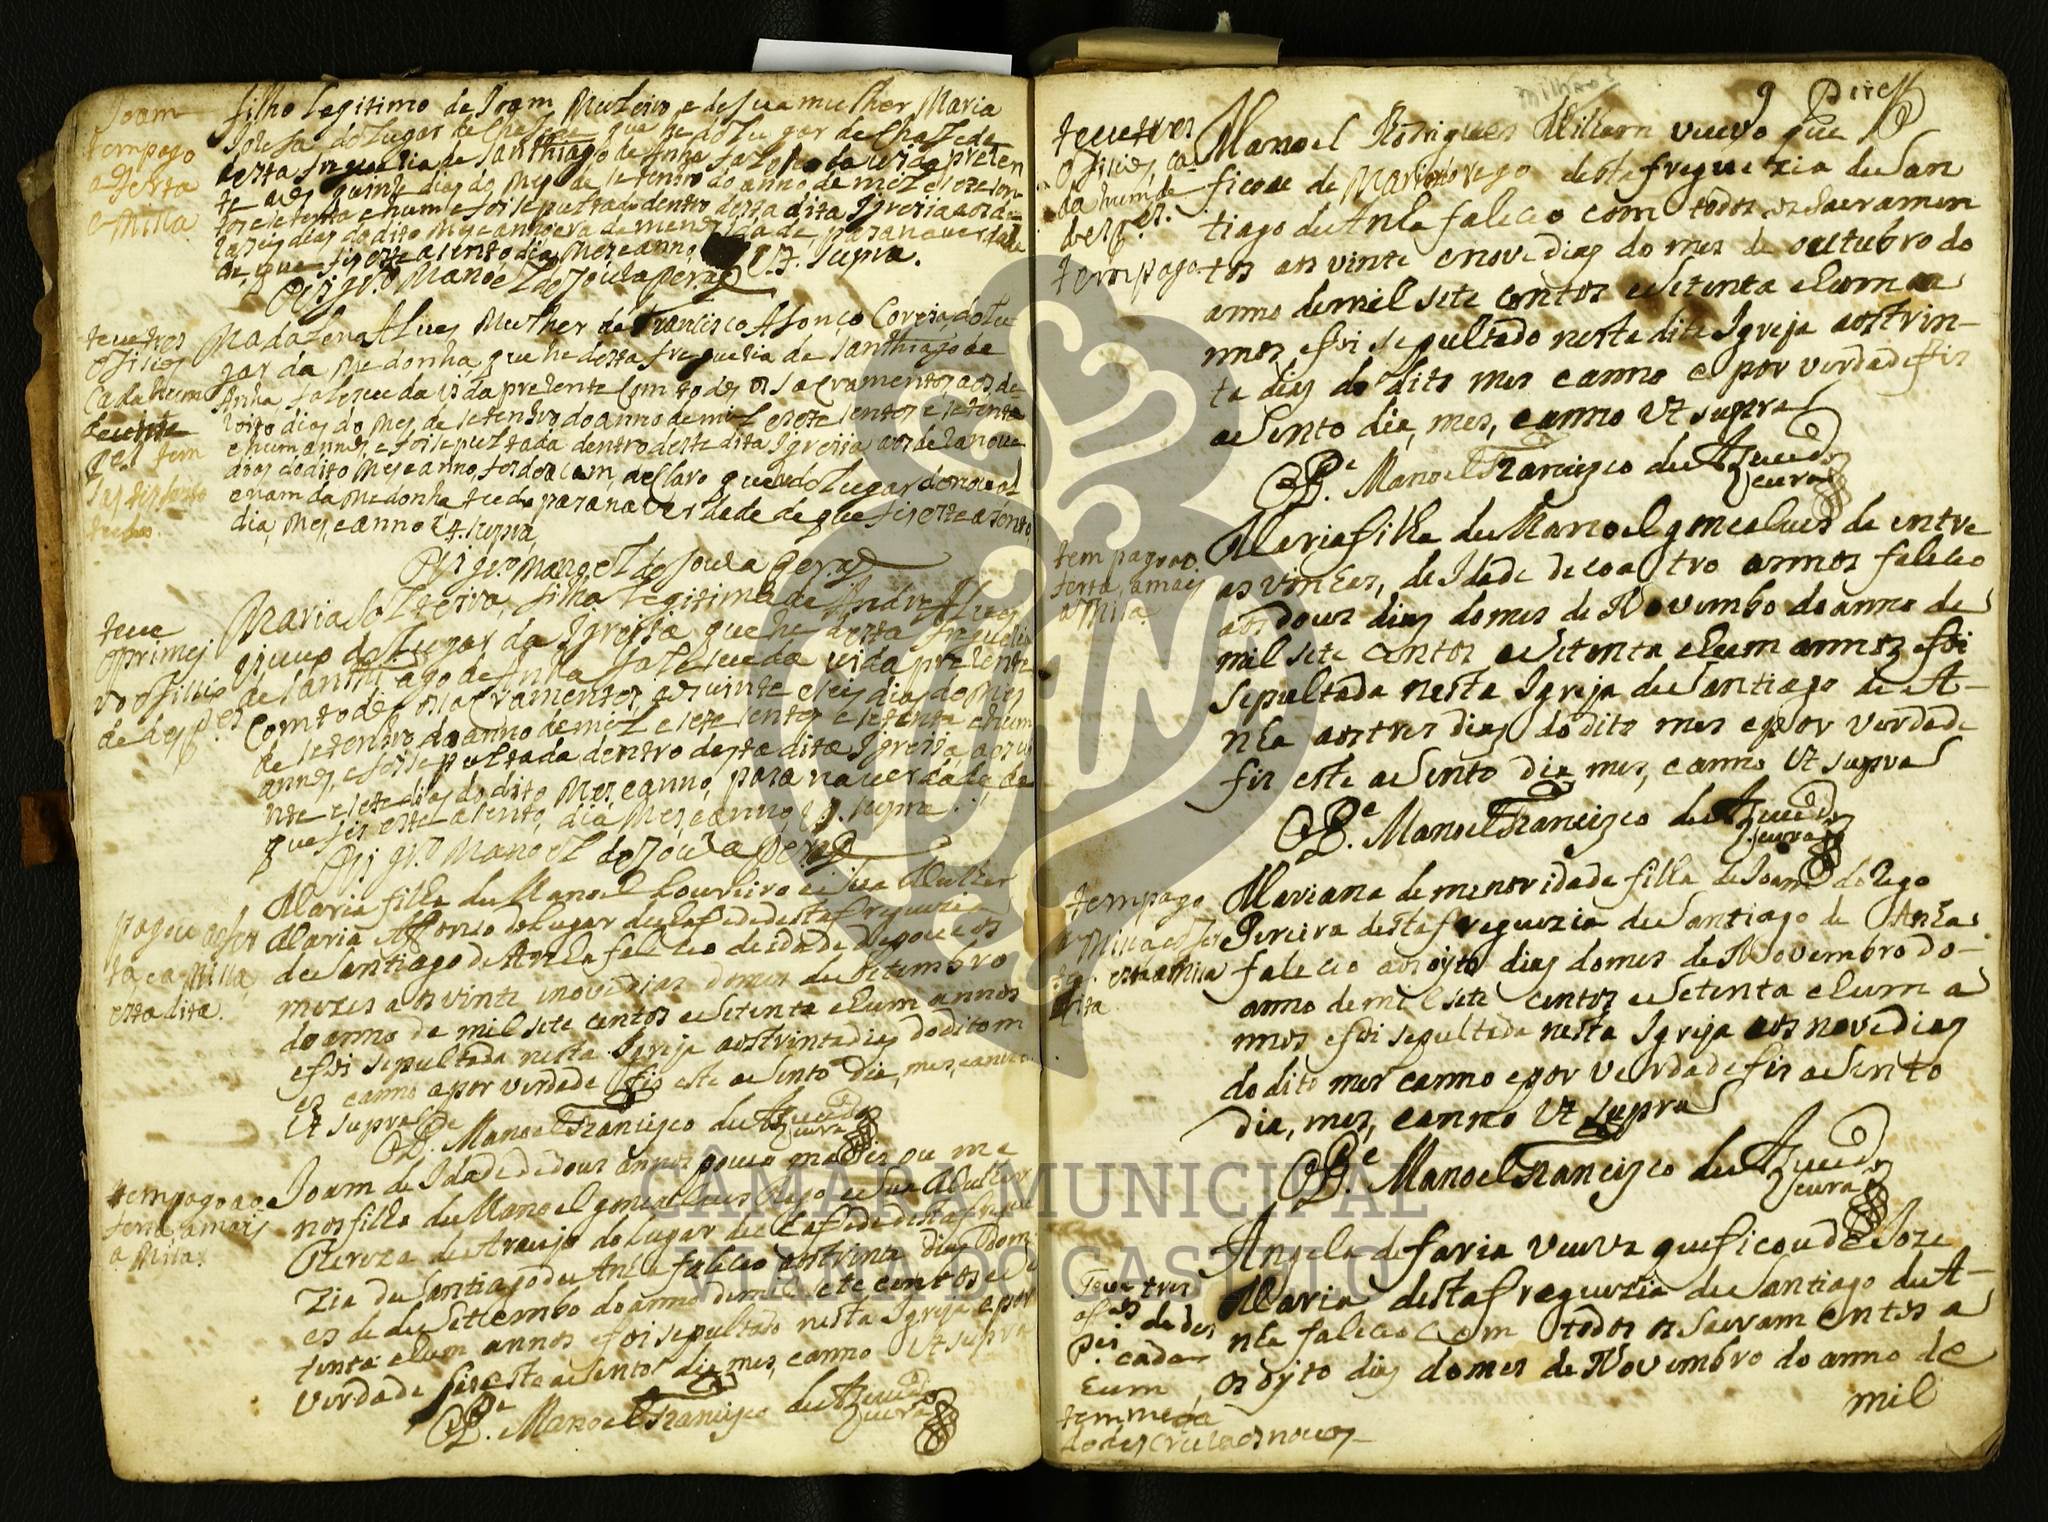 Joam
tem pago
a oferta
e Missa
filho legitimo de Joam Munteiro e de sua mulher Maria
do Lugar de Chafe que he do Lugar de Chafe de
desta freguesia de Santhiago de Anha faleseo da vida prezen
te aos quinze dias do Mes de setenbro do anno de mil e sete sen
tos e setenta e hum e foi sepultado dentro desta dita Igreija aos de
zaseis dias do dito Mes e anno era de menor idade, para na verdade
de que fis este asento dia Mes e anno Ut supra.
O Vigr.o Manoel de Souza Pera
teve tres
ofisios
cada hum
de outo
p.es tem
satisfeito
todos
Madalena Alves Mulher de Francisco Afonço Coreia, do Lu
gar da Medonha, que he desta freguesia de Santhiago de
Anha, faleseu da vida prezente Com todos os sacramentos, aos de
zoito dias do Mes de setenbro do anno de mil e sete sentos e setenta
e hum annos, e foi sepultada dentro deste dita Igreija aos dezanove
dias do dito Mes e anno, declaro que
dia, Mes, e anno Ut supra
O Vigr.o Manoel de Souza Pera
teve
o primei
ro offisio
de des p.es
Maria Solteira, filha legitima de Andre Alves
Viuvo do Lugar da Igreija que he desta freguesia
de Santhiago de Anha faleseu da vida prezente
Com todos os sacramentos, aos vinte e seis dias do Mes
de setenbro do anno de mil e sete sentos e setenta e hum
annos, e foi sepultada dentro desta dita Igreija, aos vi
nte e sete dias do dito Mes e anno, para na verdade, de
que fis este asento, dia Mes, e anno Ut supra.
O Vigr.o Manoel de Souza Pera
pagou a ofer
ta, e a Missa
esta dita.
Maria filha de Manoel Loureiro e sua Mulher
Maria Affonso do Lugar de Chafe desta freguezia
de Santiago de Anha faleceo de idade de poucos
mezes aos vinte e nove dias do mes de Setembro
do anno de mil sete centos e Setenta e hum annos
e foi sepultada nesta Igreja aos trinta dias do dito m
es e anno e por verdade fis este aSento dia, mes, e anno
Ut supra
O P.e Manoel Francisco de Azevedo
cura
tem pago ao
terra, a mais
a Missa.
Joam de Idade de dous annos pouco mais ou me
nos filho de Manoel goncalves Rego e sua Mulher
Thereza de Araujo do Lugar de Chafe desta fregue
zia de Santiago de Anha faleceo aos trinta dias do m
es de Settembo do anno de mil sete centos e Se
tenta e hum annos e foi sepultado nesta Igreja e por
verdade fis este aSento dia, mes, e anno Ut supra
O P.e Manoel Francisco de Azevedo
cura
milhao
9 Pires
teve tres
ofisios ca
da hum de
des p.es
tem pago
Manoel Rodrigues Milham viuvo que
ficou de desta freguezia de San
tiago de Anha faleceo com todos os Sacramen
tos aos vinte e nove dias do mes de outubro do
anno de mil sete centos e Setenta e hum an
nnos, e foi sepultado nesta dita Igreja aos trin-
ta dias do dito mes e anno e por verdade fis
aSento dia, mes, e anno Ut supra
O P.e Manoel Francisco de Azevedo
cura
tem pago ao
terra, a mais
a Missa
Maria filha de Manoel goncalves de entre
as vinhas, de Idade de coatro annos faleceo
aos dous dias do mes de Novembo do anno de
mil sete centos e Setenta e hum annos, e foi
sepultada nesta Igreja de Santiago de A-
nha aos tres dias do dito mes e por verdade
fis este aSento dia, mes, e anno Ut supra
O P.e Manoel Francisco de Azevedo
cura
tem pago
a Missa e ofer
ta esta a missa
dita
Mariana de menor idade filha de Joam do Rego
Pereira desta freguezia de Santiago de Anha
faleceo aos oyto dias do mes de Novembro do
anno de mil sete centos e Setenta e hum a
nnos e foi sepultada nesta Igreja aos nove dias
do dito mes e anno e por verdade fis aSento
dia, mes, e anno Ut supra
O P.e Manoel Francisco de Azevedo
cura
Teve tres
of.os de des
p.es cada
hum
tem
Angela de faria viuva que ficou de Joze
Maria desta freguezia de Santiago de A-
nha faleceo com todos os Sacramentos a
os oyto dias do mes de Novembro do anno de
mil
CÂMARA MUNICIPAL
VIANA DO CASTELO